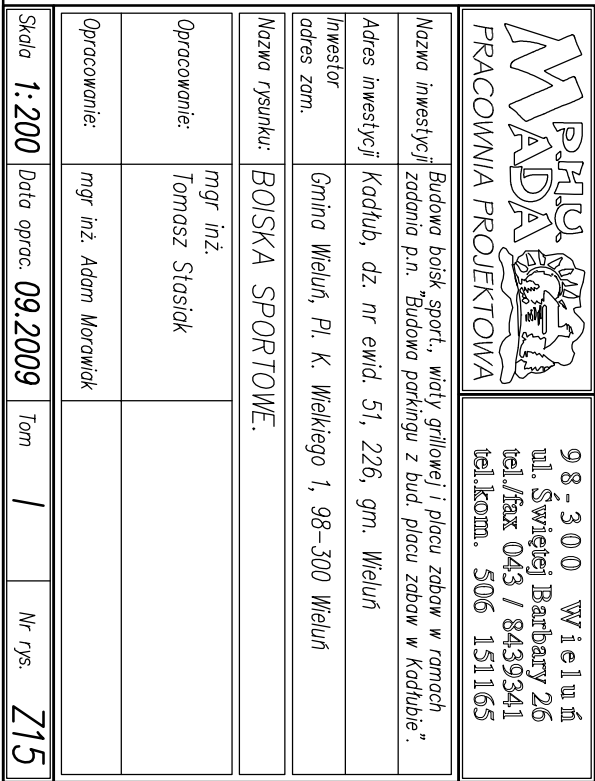 P.H.U.
MADA
PRACOWNIA PROJEKTOWA
98-300 Wieluń
ul. Świętej Barbary 26
tel./fax 043 / 8439341
tel.kom. 506 151165
Nazwa inwestycji
Budowa boisk sport., wiaty grillowej i placu zabaw w ramach
zadania p.n. "Budowa parkingu z bud. placu zabaw w Kadłubie".
Adres inwestycji
Kadłub, dz. nr ewid. 51, 226, gm. Wieluń
Inwestor
adres zam.
Gmina Wieluń, Pl. K. Wielkiego 1, 98-300 Wieluń
Nazwa rysunku:
BOISKA SPORTOWE.
Opracowanie:
mgr inż.
Tomasz Stasiak
Opracowanie:
mgr inż. Adam Morawiak
Skala 1:200
Data oprac. 09.2009
Tom I
Nr rys. Z15